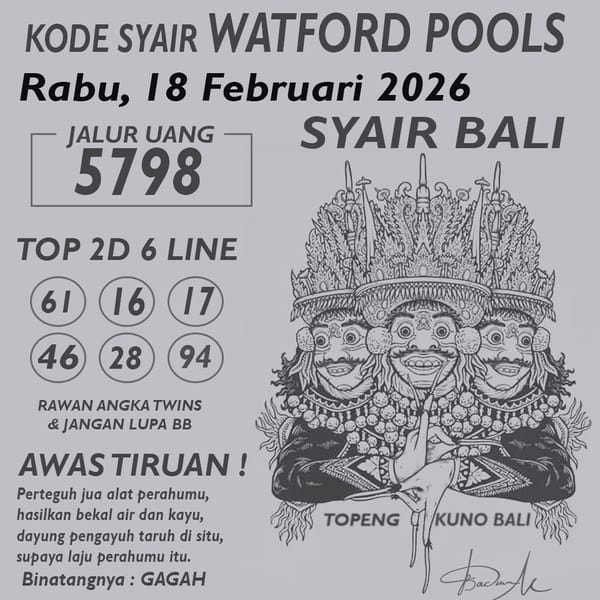 KODE SYAIR WATFORD POOLS
Rabu, 18 Februari 2026
JALUR UANG
5798
SYAIR BALI
TOP 2D 6 LINE
61 16 17
46 28 94
RAWAN ANGKA TWINS
& JANGAN LUPA BB
AWAS TIRUAN !
Perteguh jua alat perahumu,
hasilkan bekal air dan kayu,
dayung pengayuh taruh di situ,
supaya laju perahumu itu.
Binatangnya : GAGAH
TOPENG KUNO BALI